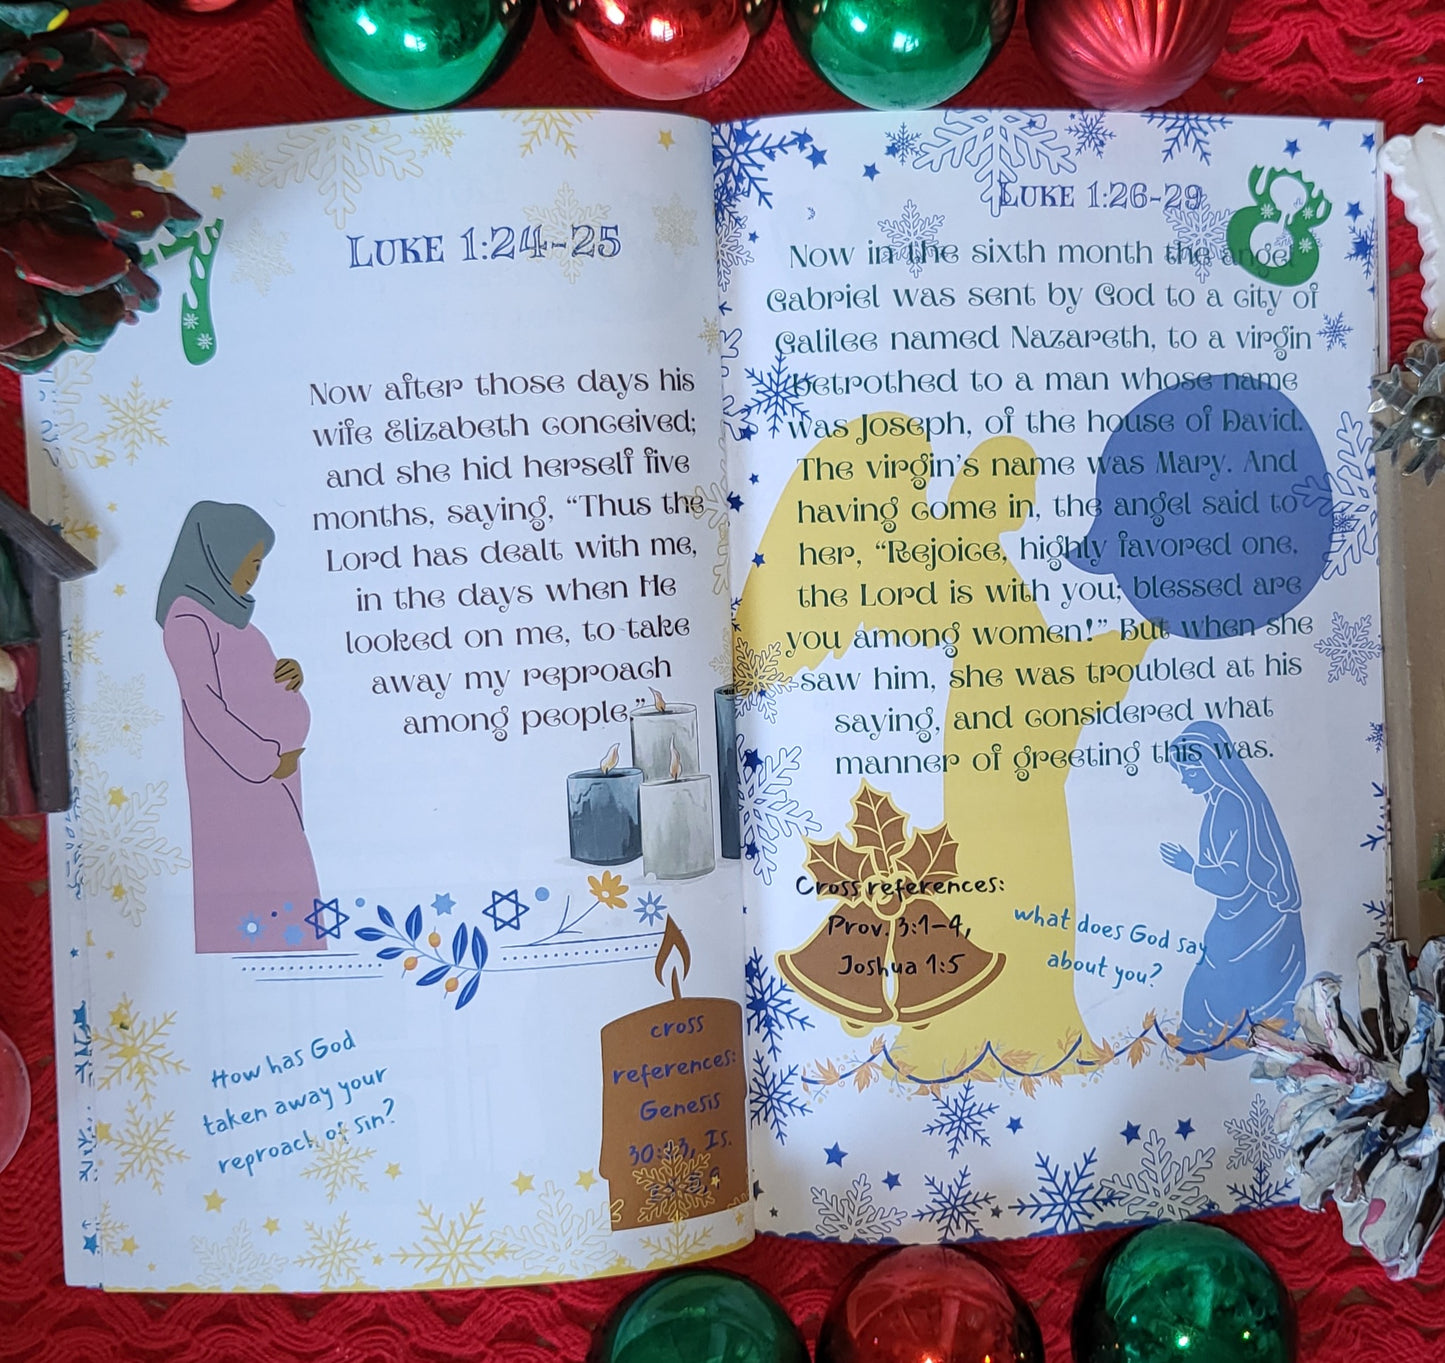 7
LUKE 1:24-25
Now after those days his
wife Elizabeth conceived;
and she hid herself five
months, saying, “Thus the
Lord has dealt with me,
in the days when He
looked on me, to take
away my reproach
among people.”
How has God
taken away your
reproach of sin?
cross
references:
Genesis
Is.
8
LUKE 1:26-29
Now in the sixth month the angel
Gabriel was sent by God to a city of
Galilee named Nazareth, to a virgin
betrothed to a man whose name
was Joseph, of the house of David.
The virgin’s name was Mary. And
having come in, the angel said to
her, “Rejoice, highly favored one,
the Lord is with you; blessed are
you among women!” But when she
saw him, she was troubled at his
saying, and considered what
manner of greeting this was.
Cross references:
Prov. 3:1-4,
Joshua 1:5
what does God say
about you?